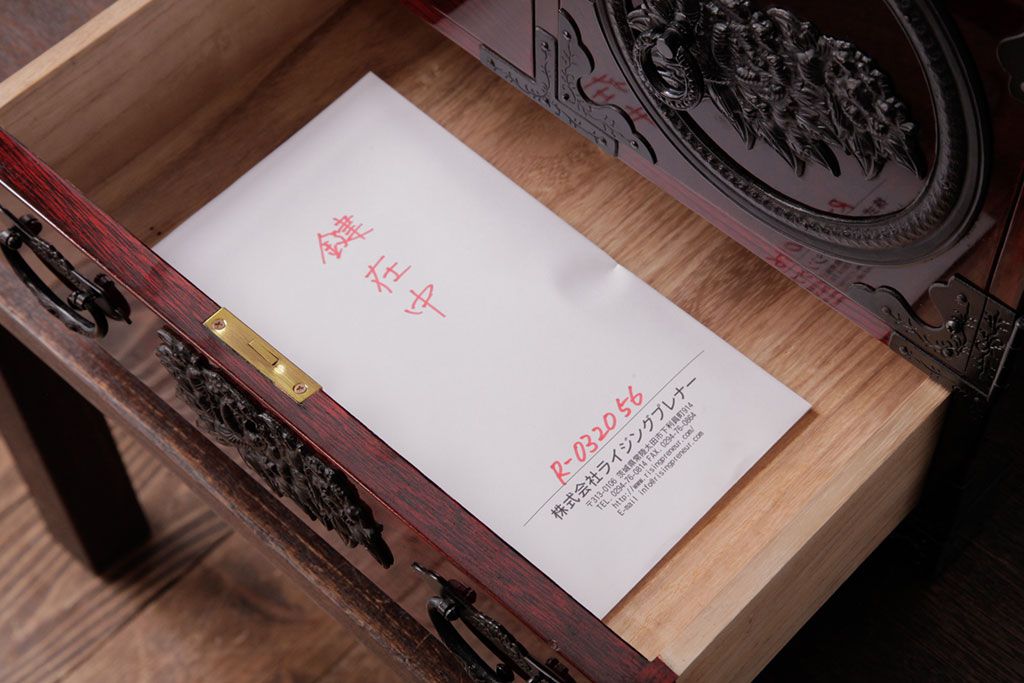 鍵在中
R-032056
株式会社ライジングプレナー
〒313-0106 茨城県常陸太田市下利員町914
TEL. 0294-76-0814 FAX. 0294-76-0854
http://www.risingpreneur.com/
E-mail info@risingpreneur.com